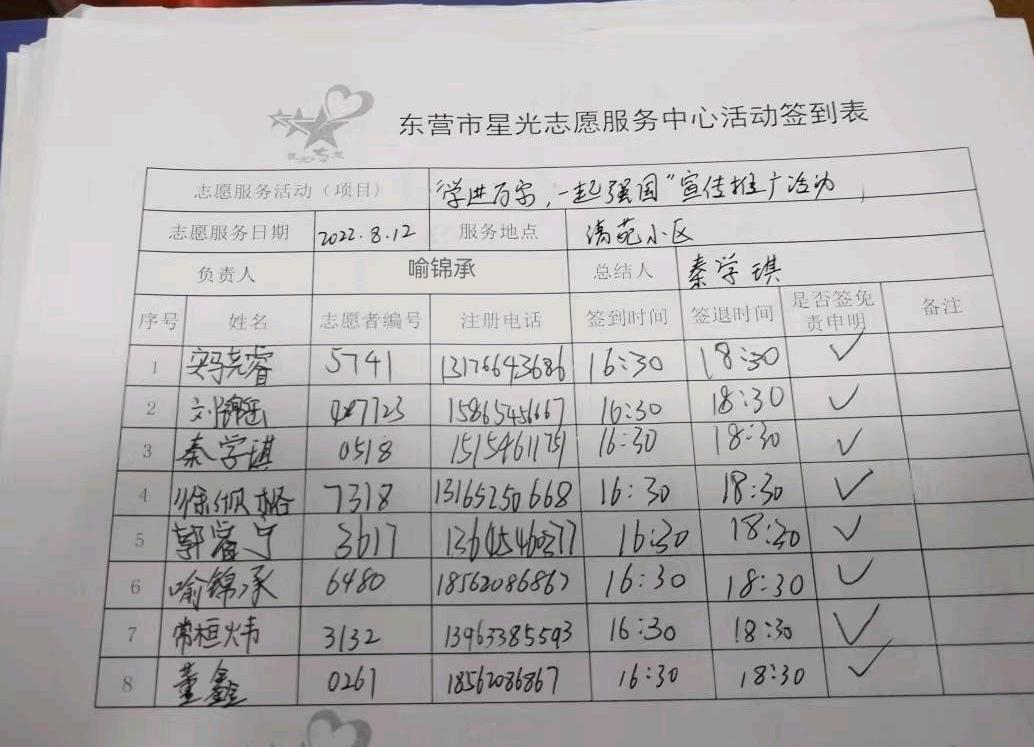 东营市星光志愿服务中心活动签到表
志愿服务活动（项目） "学进万家，一起强国"宣传推广活动
志愿服务日期 2022.8.12 服务地点 清苑小区
负责人 喻锦承 总结人 秦学琪
序号 姓名 志愿者编号 注册电话 签到时间 签退时间 是否签免责申明 备注
1 5741 13176643686 16:30 18:30 ✓
2 7723 15865456667 16:30 18:30 ✓
3 秦学琪 0518 15154611751 16:30 18:30 ✓
4 7318 13165250668 16:30 18:30 ✓
5 3617 16:30 18:30 ✓
6 喻锦承 6480 18562086867 16:30 18:30 ✓
7 常桓炜 3132 13963385593 16:30 18:30 ✓
8 董鑫 0267 18562086867 16:30 18:30 ✓